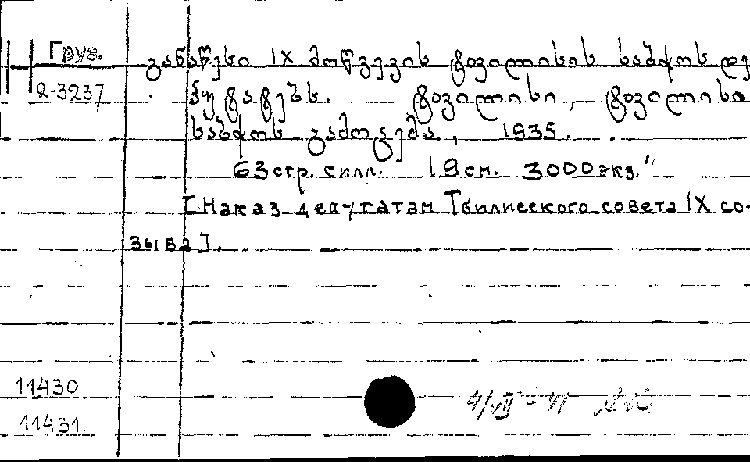 Груз. განაწესი IX მოწვევის ტფილისის საბჭოს დე
2-3237 პუტატებს. ტფილისი, ტფილისის
საბჭოს გამოცემა, 1935.
63 стр. с илл. 19 см. 3000 экз."
[Наказ депутатам Тбилисского совета IX со-
зыва].
11430
11431